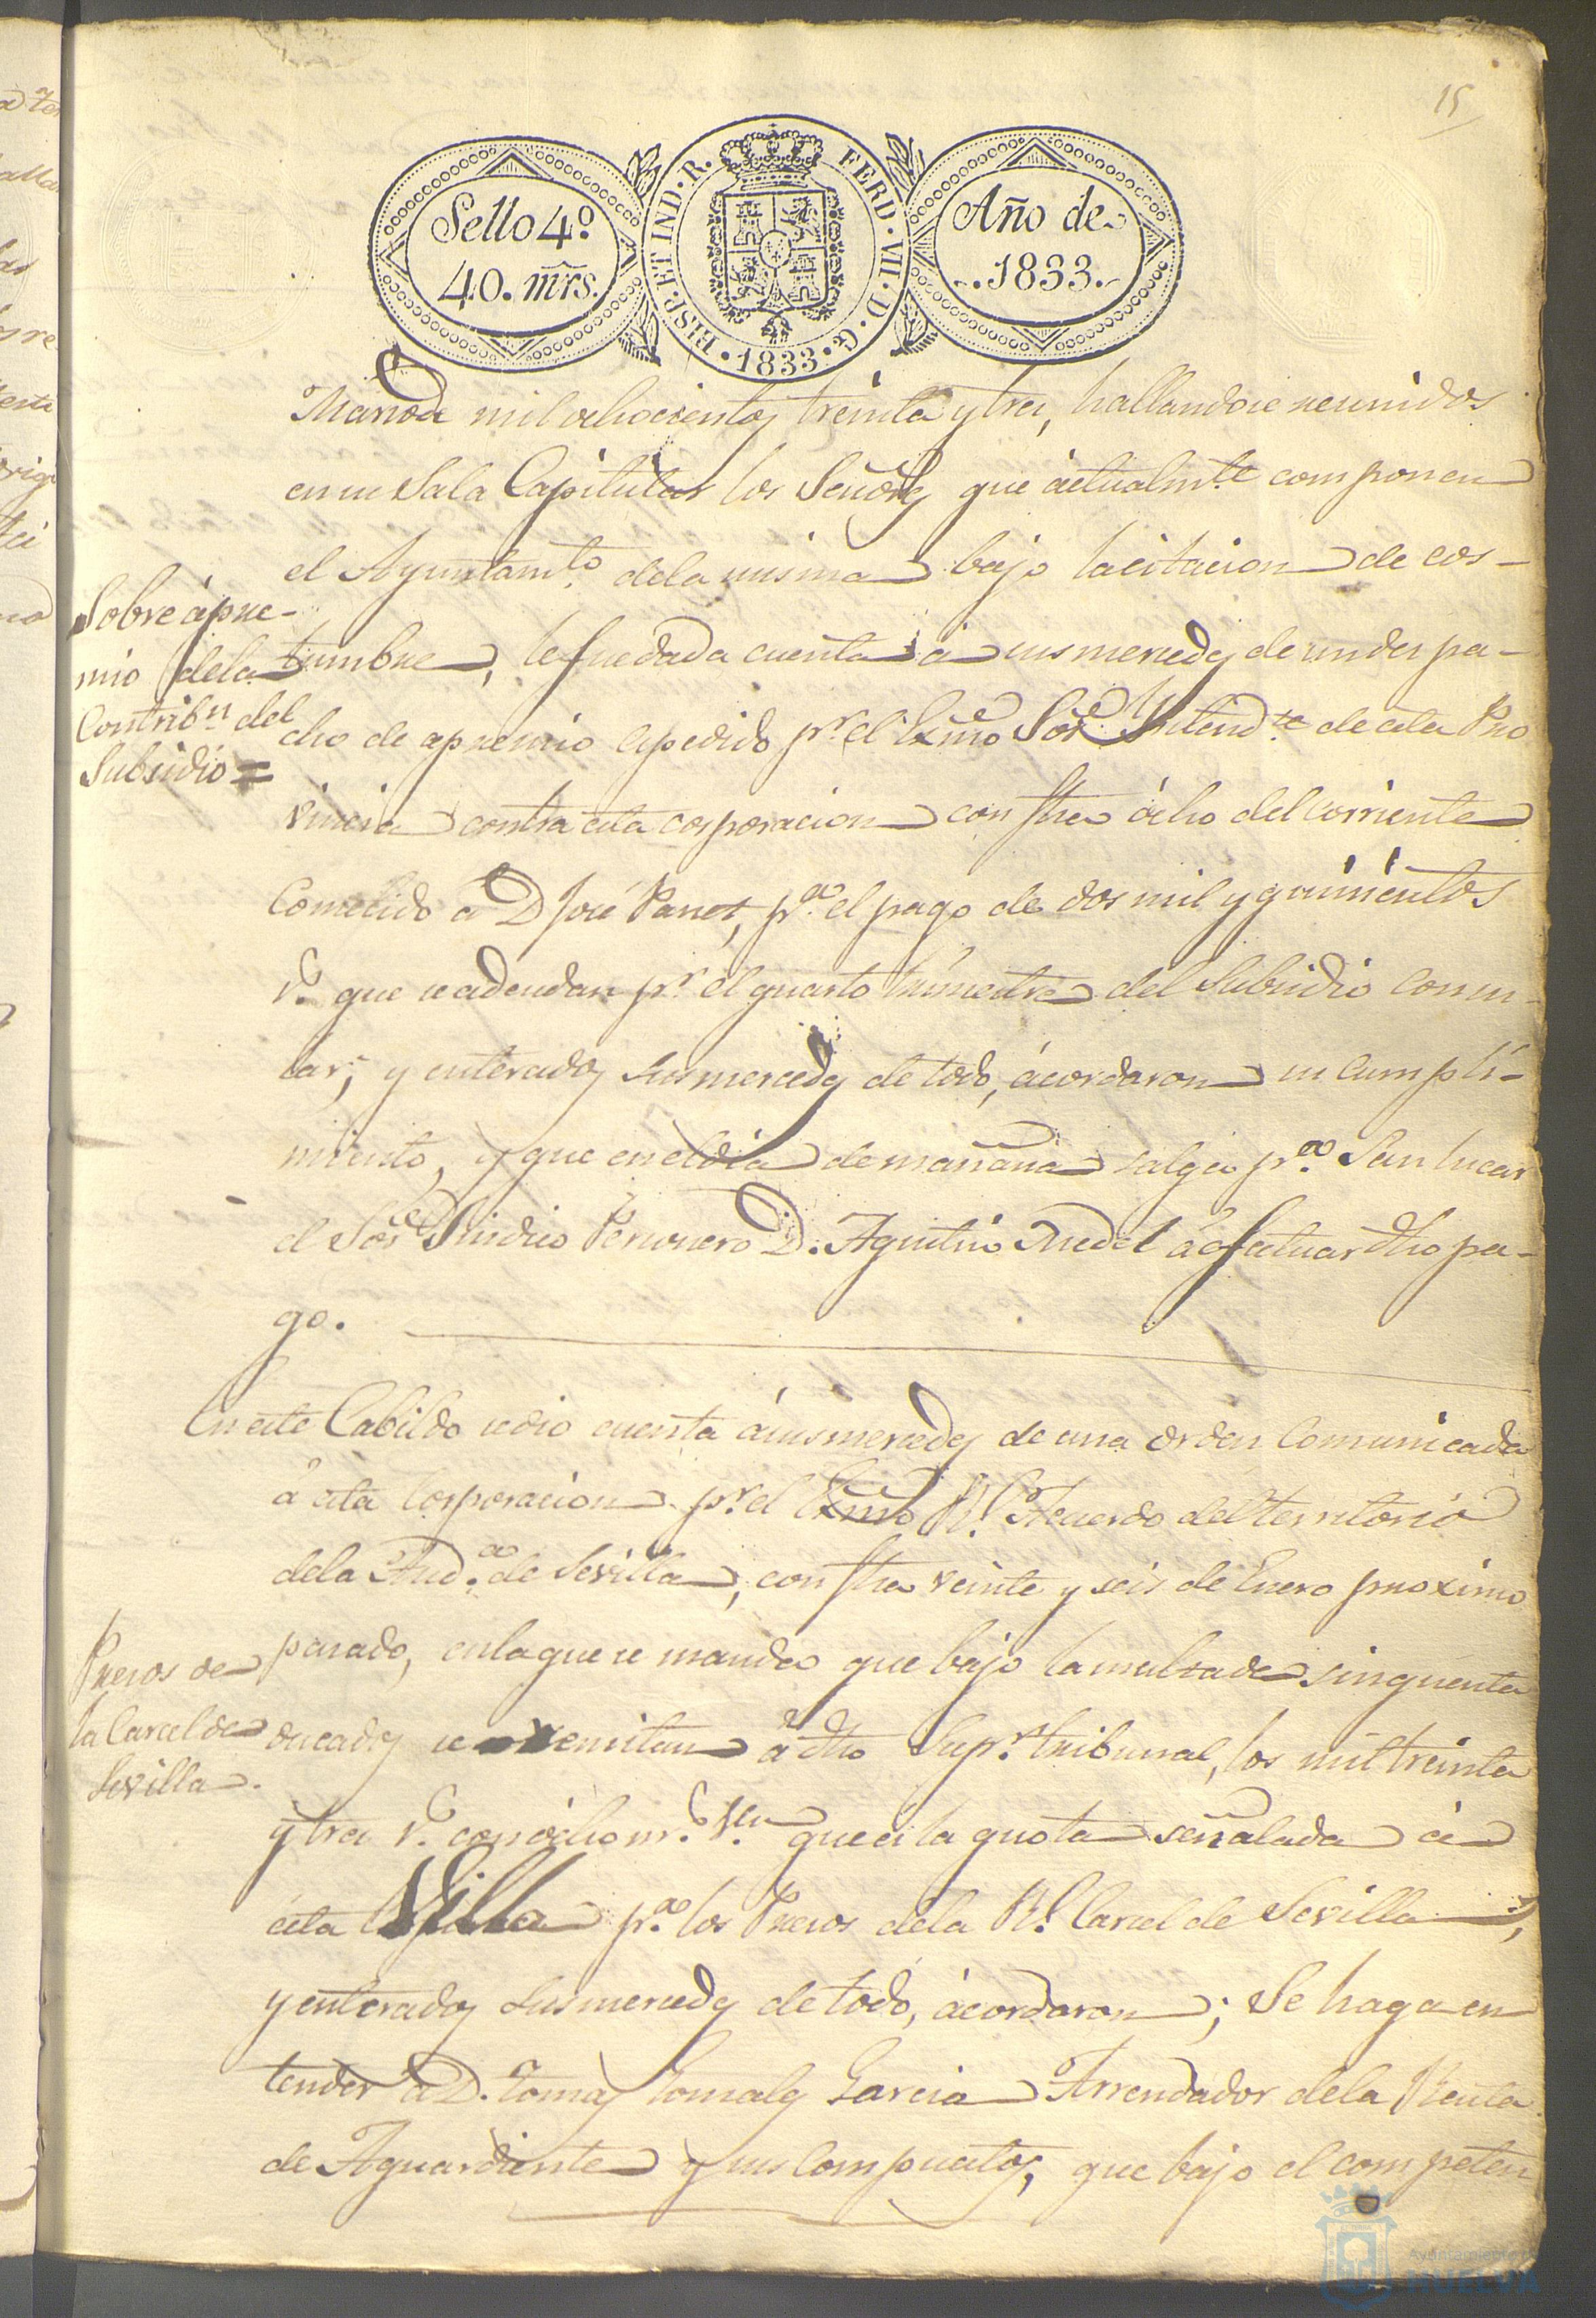 15
Sello 4º
40. mrs.
HISP. ET IND. R. FERD. VII. D. G. 1833.
Año de
1833.
Marzo de mil ochocientos treinta y tres, hallandose reunidos
en su Sala Capitular los Señores que àctualmte componen
el Ayuntamto dela misma bajo la citacion de cos-
tumbre, le fue dada cuenta à sus mercedes de un des pa-
cho de apremio espedido pr el Exmo Sor Intendte de esta Pro
vincia contra esta corporacion con fha ócho del corriente
Cometido á D José Panet, pa el pago de dos mil y quinientos
rs que se adeudan pr el quarto trimestre del Subsidio Comer-
ciar, y enterados sus mercedes de todo, ácordaron su cumpli-
miento, y que en el dia de mañana salga pa San lucar
el Sor Sindico Personero D. Agustin Redel á efectuar dho pa-
go.
Sobre àpre-
mio dela
Contribn del
Subsidio =
En este Cabildo se dio cuenta á sus mercedes de una orden Comunicada
á esta Corporacion pr el Exmo Rl Acuerdo del territorio
dela Auda de Sevilla, con fha veinte y seis de Enero proximo
pasado, en la que se manda que bajo la multa de sinquenta
ducados se remitan á dho Supr tribunal, los mil treinta
y tres rs con ócho mrs Vn que es la quota señalada à
esta Villa pa los Presos dela Rl Carcel de Sevilla,
y enterados sus mercedes de todo, ácordaron; Se haga en
tender á D. Tomas Gonzales Garcia Arrendador dela Renta
de Aguardiente y sus Compuestos, que bajo el competen
Presos de
la Carcel de
Sevilla.
Ayuntamiento
HUELVA